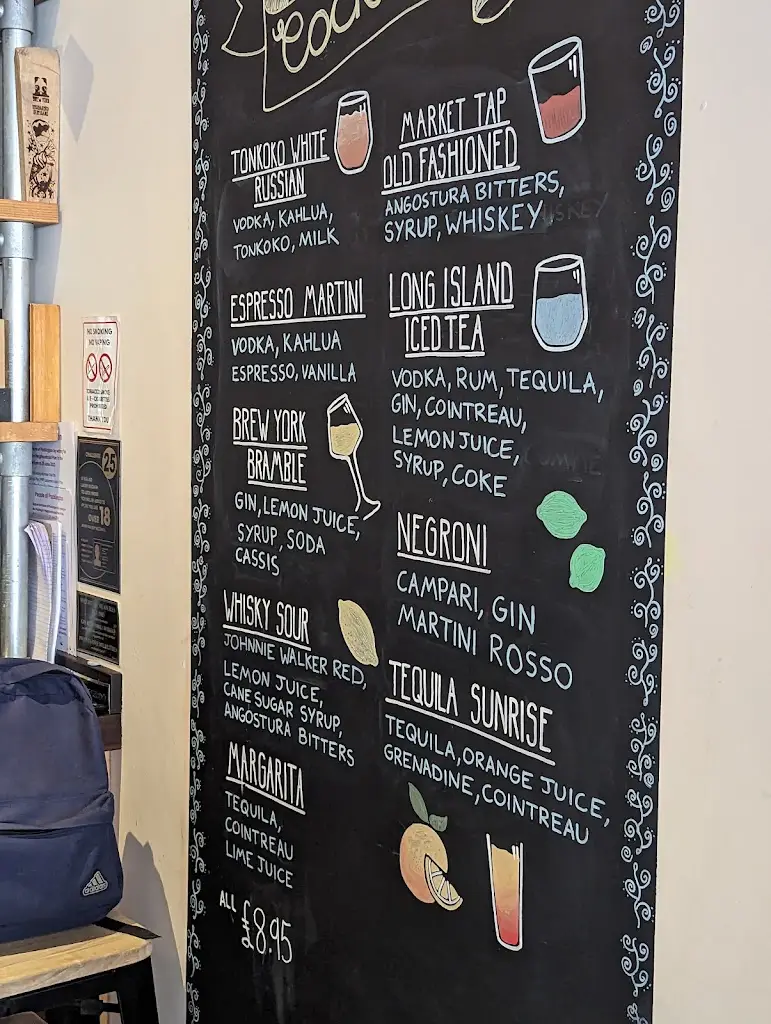 TONKOKO WHITE
RUSSIAN
VODKA, KAHLUA,
TONKOKO, MILK
ESPRESSO MARTINI
VODKA, KAHLUA
ESPRESSO, VANILLA
BREW YORK
BRAMBLE
GIN, LEMON JUICE,
SYRUP, SODA
CASSIS
WHISKY SOUR
JOHNNIE WALKER RED,
LEMON JUICE,
CANE SUGAR SYRUP,
ANGOSTURA BITTERS
MARGARITA
TEQUILA,
COINTREAU
LIME JUICE
ALL
£8.95
MARKET TAP
OLD FASHIONED
ANGOSTURA BITTERS,
SYRUP, WHISKEY
LONG ISLAND
ICED TEA
VODKA, RUM, TEQUILA,
GIN, COINTREAU,
LEMON JUICE,
SYRUP, COKE
NEGRONI
CAMPARI, GIN
MARTINI ROSSO
TEQUILA SUNRISE
TEQUILA, ORANGE JUICE,
GRENADINE, COINTREAU
NO SMOKING
NO VAPING
THANK YOU
25
OVER 18
BREW YORK
adidas